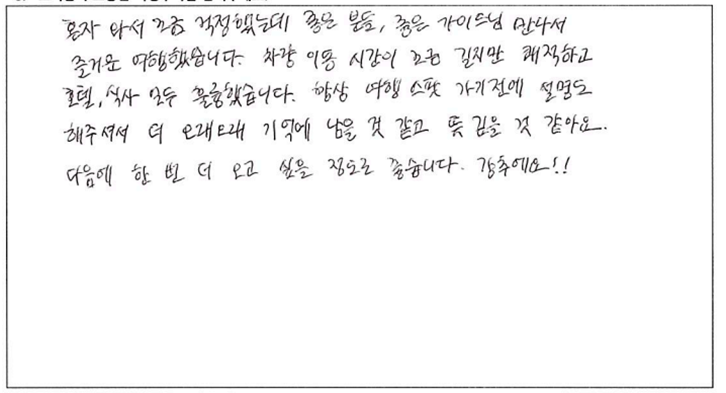 혼자 와서 조금 걱정했는데 좋은 분들, 좋은 가이드님 만나서
즐거운 여행했습니다. 차량 이동 시간이 조금 길지만 쾌적하고
호텔, 식사 모두 훌륭했습니다. 항상 여행 스팟 가기전에 설명도
해주셔서 더 오래오래 기억에 남을 것 같고 뜻 깊을 것 같아요.
다음에 한 번 더 오고 싶을 정도로 좋습니다. 강추에요!!